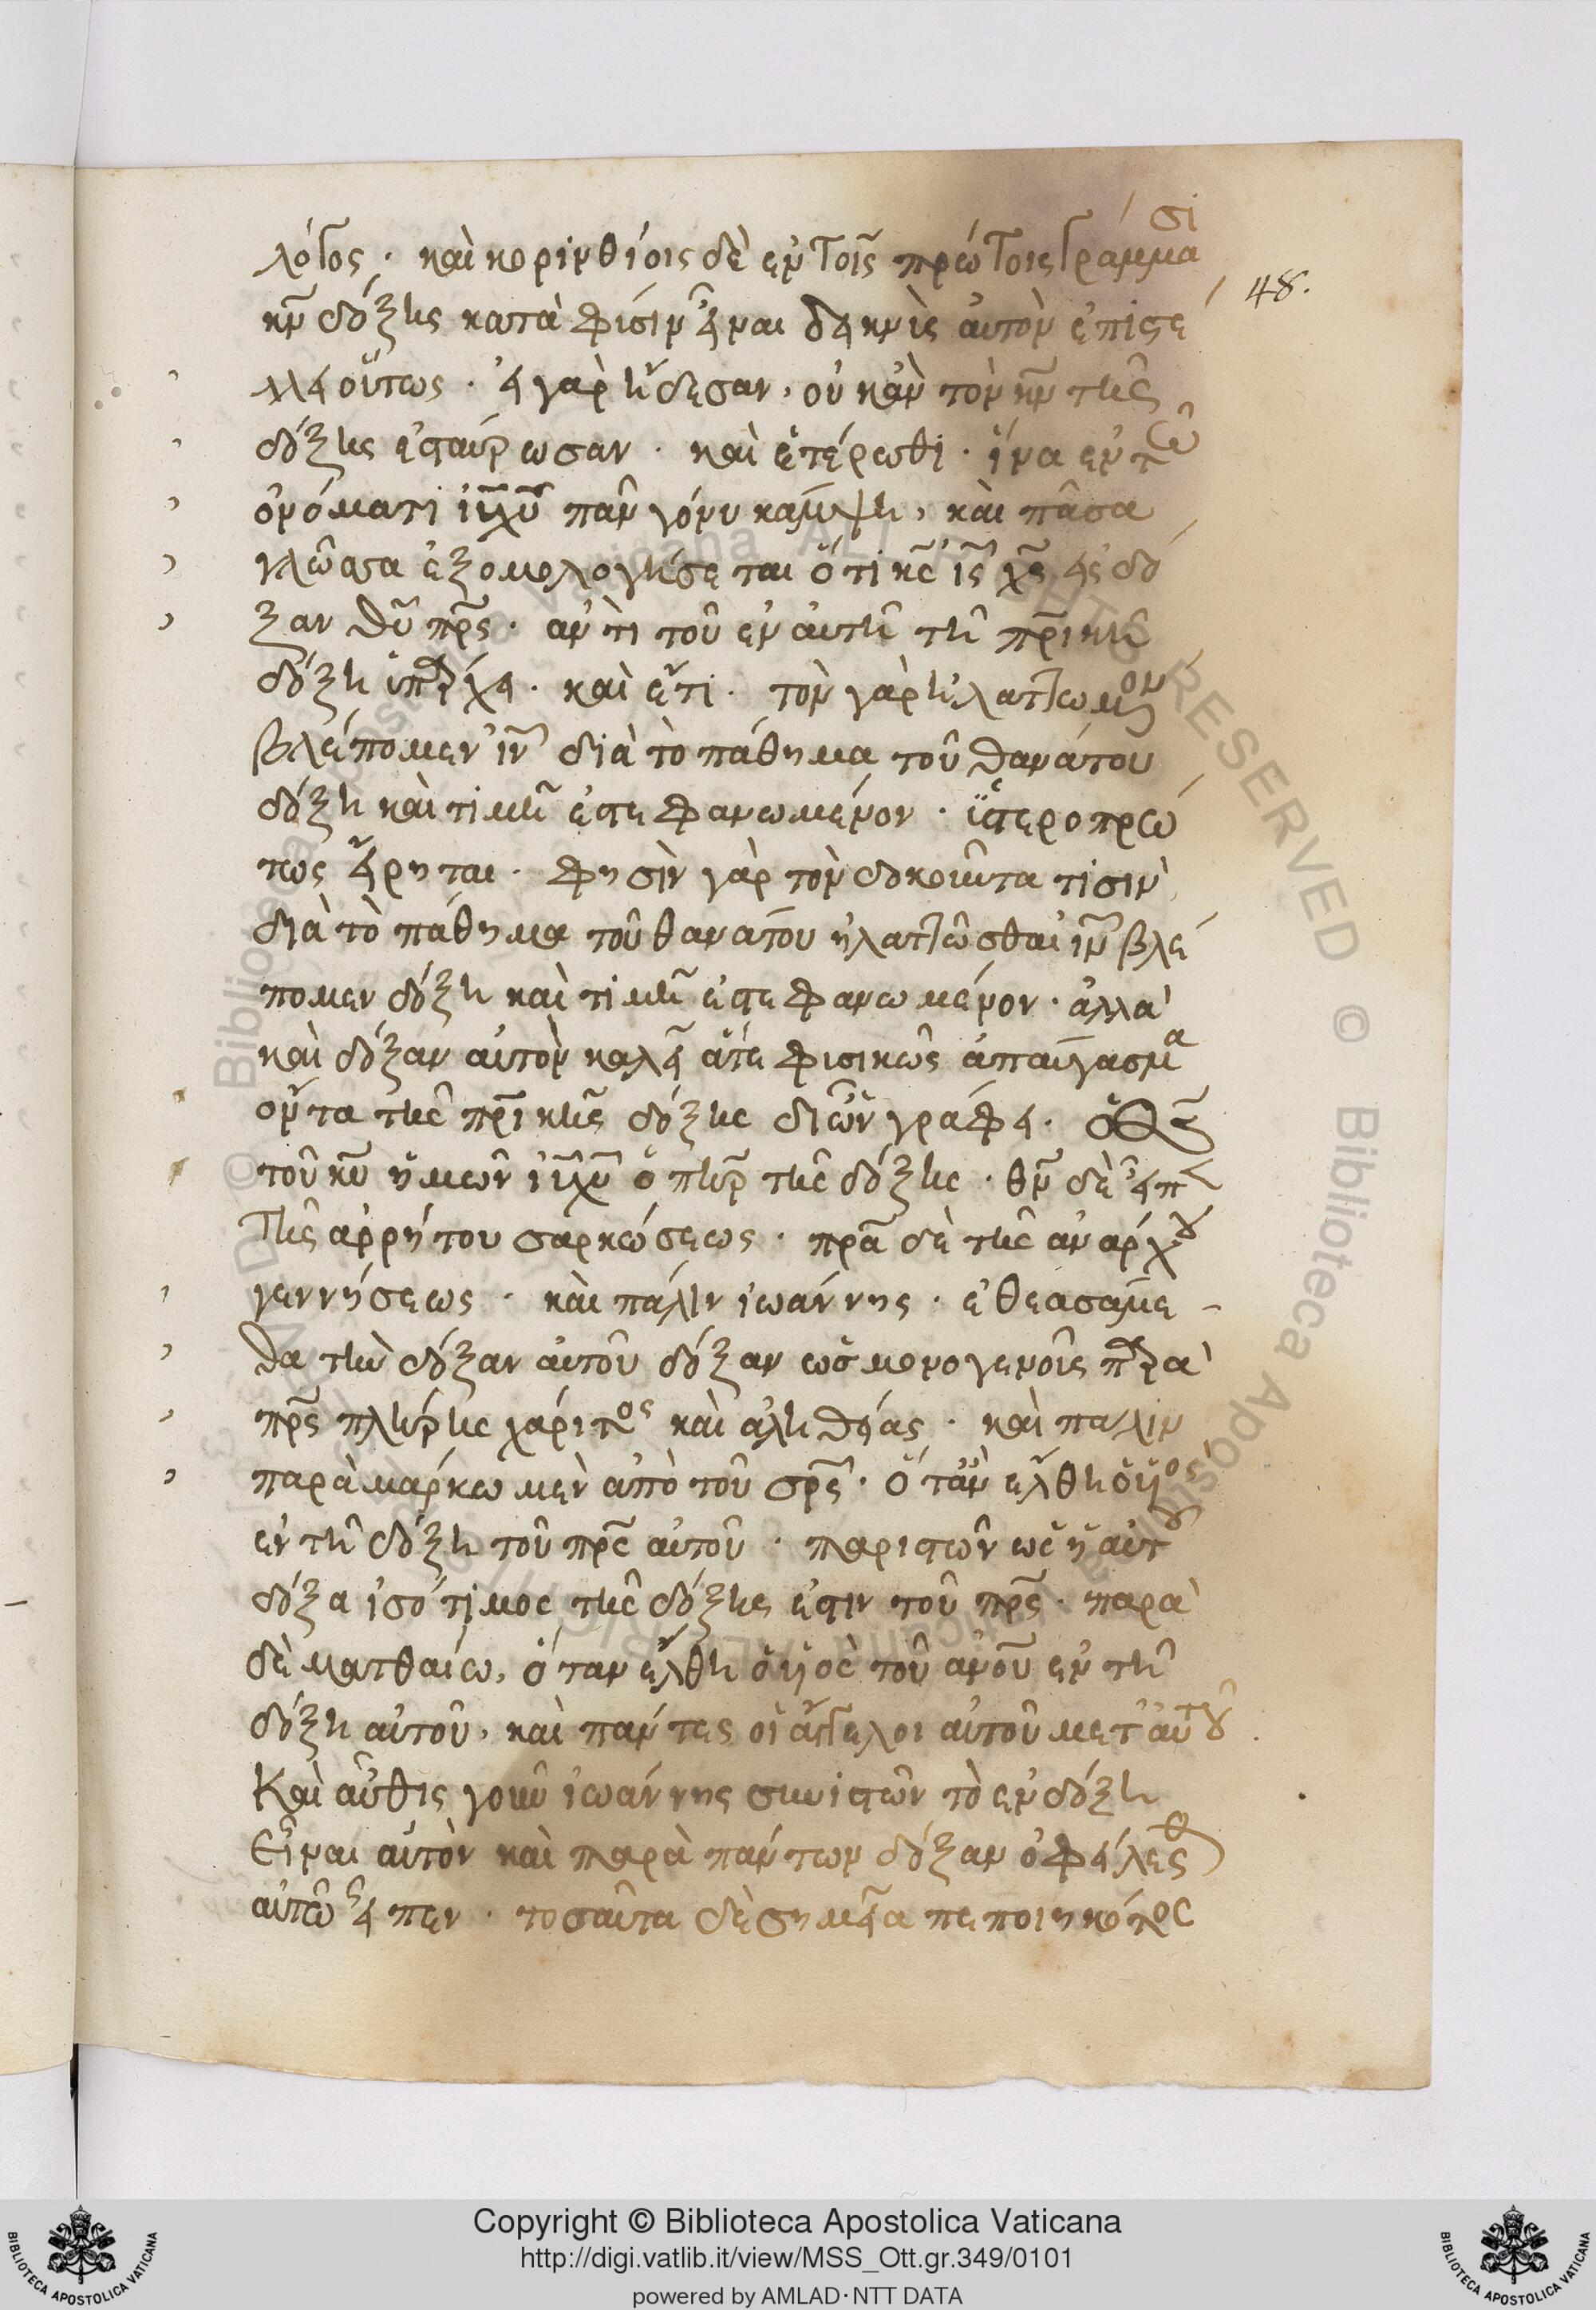 λόγος · καὶ κορινθίοις δὲ ἐν τοῖς πρώτοις γράμμασι
48.
κν̅ δόξης κατὰ φύσιν εἶναι δεικνὺς αὐτὸν ἐπιστέ
λλει οὕτως · εἰ γὰρ ᾔδεσαν, οὐκ ἂν τὸν κν̅ τῆς
δόξης ἐσταύρωσαν · καὶ ἑτέρωθι · ἵνα ἐν τῶ
ὀνόματι ιυ̅ χυ̅ πᾶν γόνυ κάμψη, καὶ πᾶσα
γλῶσσα ἐξομολογήσεται ὅτι κς̅ ις̅ χς̅ εἰς δό
ξαν θυ̅ πρς̅ · ἀντὶ τοῦ ἐν αὐτῆ τῆ πρικῆ
δόξη ὑπάρχει · καὶ ἔτι · τὸν γὰρ ἠλαττωμένον
βλέπομεν ιν̅ διὰ τὸ πάθημα τοῦ θανάτου
δόξη καὶ τιμῆ ἐστεφανωμένον · ὑστεροπρώ
τως εἴρηται · φησὶν γὰρ τὸν δοκοῦντα τισὶν
διὰ τὸ πάθημα τοῦ θανάτου ἠλαττῶσθαι ιν̅ βλέ
πομεν δόξη καὶ τιμῆ ἐστεφανωμένον · ἀλλὰ
καὶ δόξαν αὐτὸν καλεῖ ἅτε φυσικῶς ἀπαύγασμα
ὄντα τῆς πρικῆς δόξης δι' ὧν γράφει · ὁ θς̅
τοῦ κυ̅ ἡμῶν ιυ̅ χυ̅ ὁ πηρ τῆς δόξης · θν̅ δὲ εἶπε
τῆς ἀρρήτου σαρκώσεως · πρα̅ δὲ τῆς ἀνάρχου
γεννήσεως · καὶ πάλιν ἰωάννης · ἐθεασάμε-
θα τὴν δόξαν αὐτοῦ δόξαν ὡς μονογενοῦς παρὰ
πρς̅ πλήρης χάριτος καὶ ἀληθείας · καὶ πάλιν
παρὰ μάρκω μὲν ἀπὸ τοῦ σρς̅ · ὅταν ἔλθη ὁ υἱος
ἐν τῆ δόξη τοῦ πρς̅ αὐτοῦ · παριστῶν ὡς ἡ αὐτοῦ
δόξα ἰσότιμος τῆς δόξης ἐστιν τοῦ πρς̅ · παρὰ
δὲ ματθαίω, ὅταν ἔλθη ὁ υἱὸς τοῦ ἀνου̅ ἐν τῆ
δόξη αὐτοῦ, καὶ πάντες οἱ ἄγγελοι αὐτοῦ μετ' αὐτοῦ.
Καὶ αὖθις γοῦν ἰωάννης συνιστῶν τὸ ἐν δόξη
Εἶναι αὐτὸν καὶ παρὰ πάντων δόξαν ὀφείλεσθ
αὐτῶ εἶπεν · τοσαῦτα δὲ σημεῖα πεποιηκότος
Copyright © Biblioteca Apostolica Vaticana
http://digi.vatlib.it/view/MSS_Ott.gr.349/0101
powered by AMLAD·NTT DATA